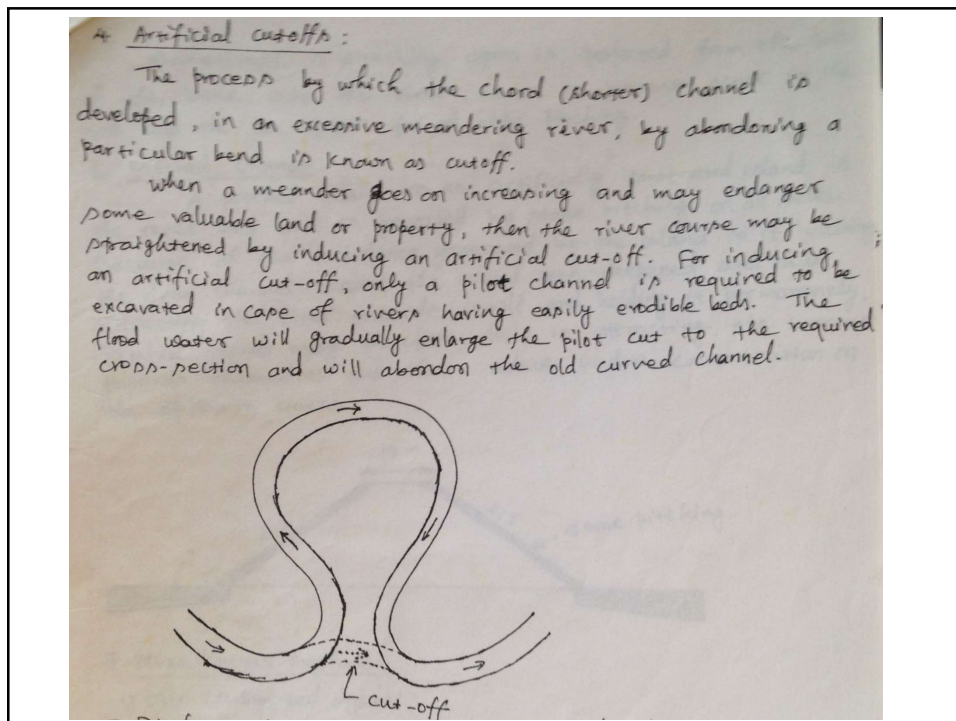 4. Artificial cutoffs :
The process by which the chord (shorter) channel is
developed, in an excessive meandering river, by abondoning a
particular bend is known as cutoff.
When a meander goes on increasing and may endanger
some valuable land or property, then the river course may be
straightened by inducing an artificial cut-off. For inducing
an artificial cut-off, only a pilot channel is required to be
excavated in case of rivers having easily erodible beds. The
flood water will gradually enlarge the pilot cut to the required
cross-section and will abondon the old curved channel.
cut-off